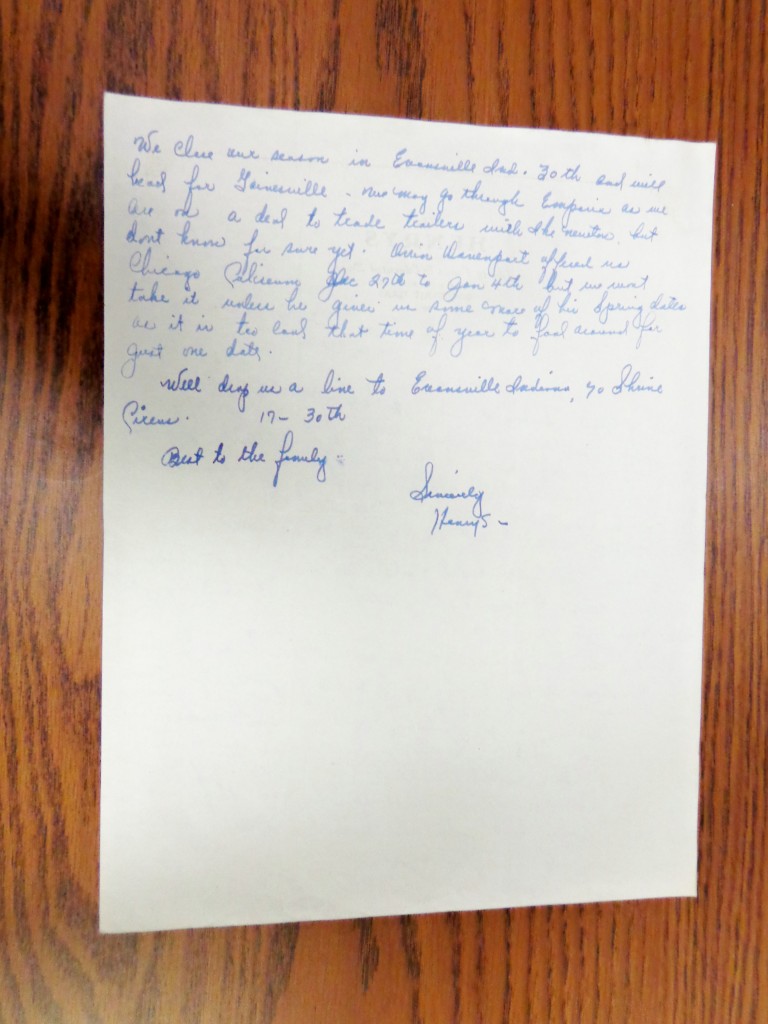 We Close our season in Evansville Ind. 30th and will
head for Gainesville - we may go through Emporia as we
are on a deal to trade trailers with the newton, but
dont know for sure yet. Orrin Davenport offered us
Chicago Coliseum Dec 27th to Jan 4th but we wont
take it unless he gives us some more of his Spring dates
as it is too cold that time of year to fool around for
just one date.
Well drop us a line to Evansville Indiana, % Shrine
Circus. 17- 30th
Best to the family
Sincerely
Henrys -